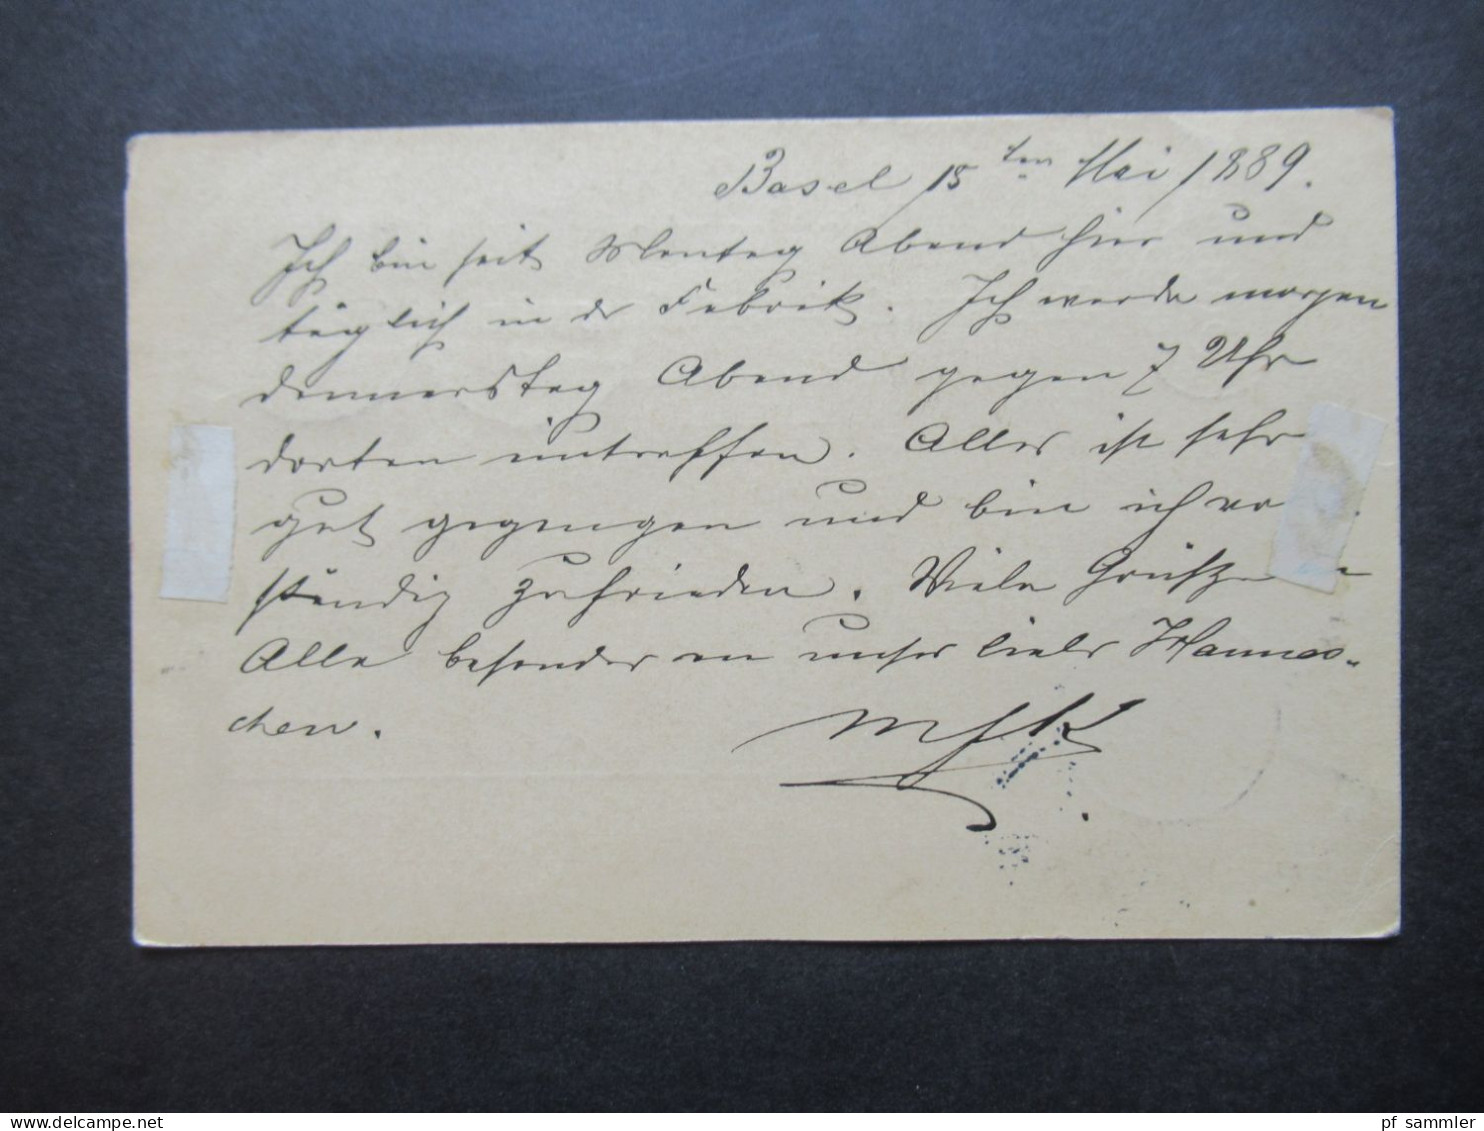 Basel 15ten Mai 1889.
Ich bin seit Montag Abend hier und
täglich in der Fabrik. Ich werde morgen
donnerstag Abend gegen 7 Uhr
dorten eintreffen. Alles ist sehr
gut gegangen und bin ich vo
ständig zufrieden. Viele Grüsze
Alle besonders an unser liebes Hannes-
chen.
pf sammler